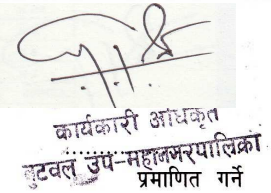 कार्यकारी अधिकृत
बुटवल उप-महानगरपालिका
प्रमाणित गर्ने